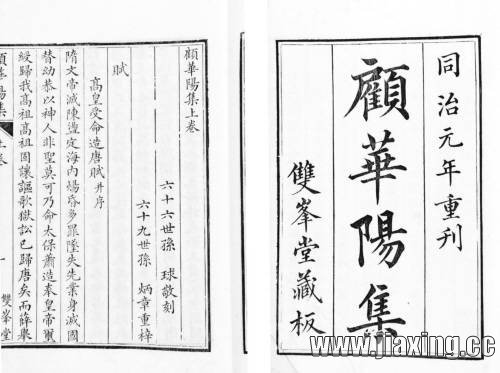 同治元年重刊
顧華陽集
雙峯堂藏板
顧華陽集上卷
六十六世孫 球敬刻
六十九世孫 炳章重梓
賦
高皇受命造唐賦并序
隋文帝滅陳盪定海内煬昏多罪墜失先業身滅國
替幼恭以神人非聖莫可乃命太保蕭造奉皇帝璽
綬歸我高祖高祖固讓謳歌獄訟已歸唐矣而薛舉
顧華陽集
上卷
一
雙峯堂
www.jiaxing.cc